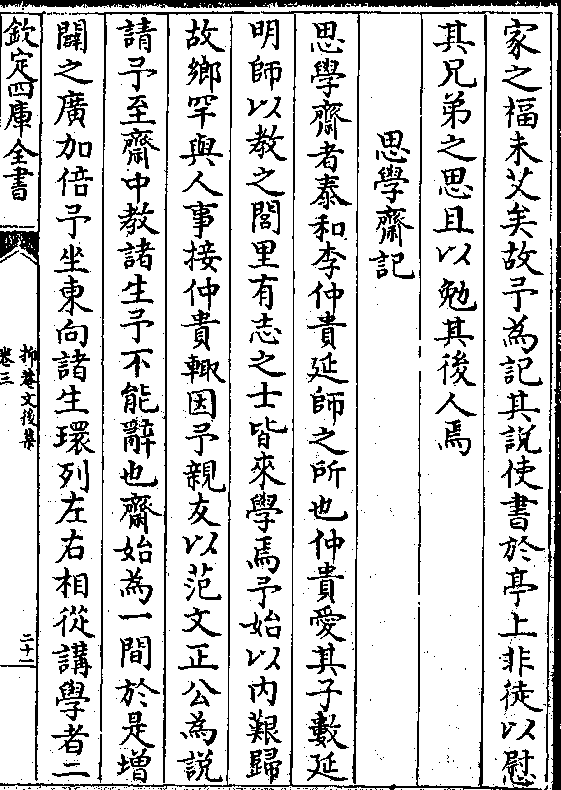 家之福未艾矣故予為記其說使書於亭上非徒以慰
其兄弟之思且以勉其後人焉
思學齋記
思學齋者泰和李仲貴延師之所也仲貴愛其子數延
明師以教之閭里有志之士皆來學焉予始以内艱歸
故鄉罕與人事接仲貴輙因予親友以范文正公為說
請予至齋中教諸生予不能辭也齋始為一間於是增
闢之廣加倍予坐東向諸生環列左右相從講學者二
欽定四庫全書
抑菴文後集
卷三
二十二